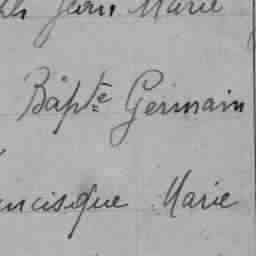 Jean Marie
Bapte Germain
ncisque Marie